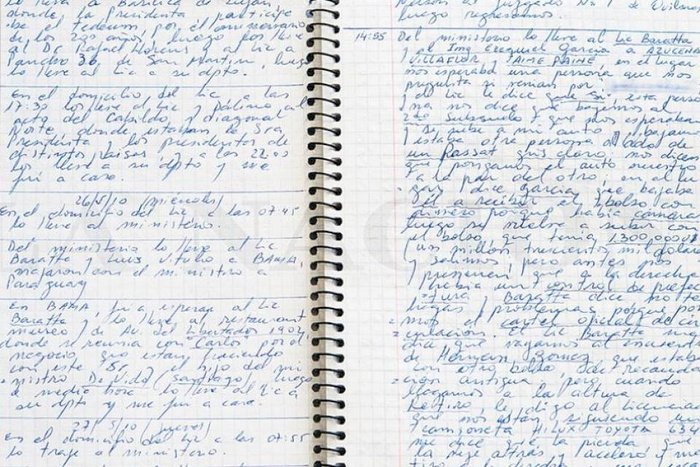 lo llevo a Basilica de Lujan,
donde la Presidenta participo
de el tedeum por el aniversario
de los 200 años, luego los llevo
al Dr. Rafael Llorens y al Lic a
Pancho 36, de San Martin, luego
lo llevo al Lic a su dpto.
En el domicilio del Lic a las
17:30 los llevo al Lic y Paloma al
acto del Cabildo, y diagonal
Norte donde estaban la Sra
Presidenta y los presidentes de
distintos Paises, y a las 22:00
los llevo a su dpto y me
fui a casa.
26/5/10 (miercoles)
En el domicilio del Lic a las 07:45
lo llevo al ministerio.
Del ministerio lo llevo al Lic
Baratta y Luis Vitulo a BAMA,
viajaron con el ministro a
Paraguay
En BAMA, fui a esperar al Lic
Baratta, lo llevo al restaurant
museo, de Av. del Libertador 1902,
donde se reunia con "Carlos" por el
negocio que estan haciendo
con este Sr, el hijo del mi
nistro De Vido (Santiago), luego
de media hora lo llevo al Lic a
su dpto y me fui a casa.
27/5/10 (jueves)
En el domicilio del Lic a las 07:55
lo traje al ministerio.
luego regresamos.
14:55
Del ministerio lo llevo al Lic Baratta
y al Ing Ezequiel Garcia a AZUCENA
VILLAFLOR y JAIME PAINE, en el lugar
nos esperaba una persona que nos
pregunto si venian por
el Lic le dice que si, esta perso
na nos dice que bajemos al
2do Subsuelo y que nos esperaban
y se sube a mi auto y bajamos
estaba otra persona al lado de
un passat gris claro, nos dicen
que pongamos el auto nuestro
a la par del otro, en el lu
gar y dice Garcia que bajaba
el a recibir el bolso con
dinero porque habia camaras
luego se vuelve a subir con
el bolso que tenia 1.300.000 U$
(un millon trescientos mil dolares)
y salimos, pero antes
y presencian que a la derecha
habia un control de prefec
tura y Baratta dice no te
hagas problemas porque por
mut el cartel oficial de cir
culacion. El Lic Baratta me
dice que vayamos al encuentro
de Hernan Gomez que estaba
con otro bolso de recauda
cion antigua, pero cuando
llegamos a la altura de
Retiro, le digo al Licenciado
que nos estan siguiendo una
camioneta HILUX TOYOTA 4x4
me dice que la pierda que
la deje atras y acelero y me